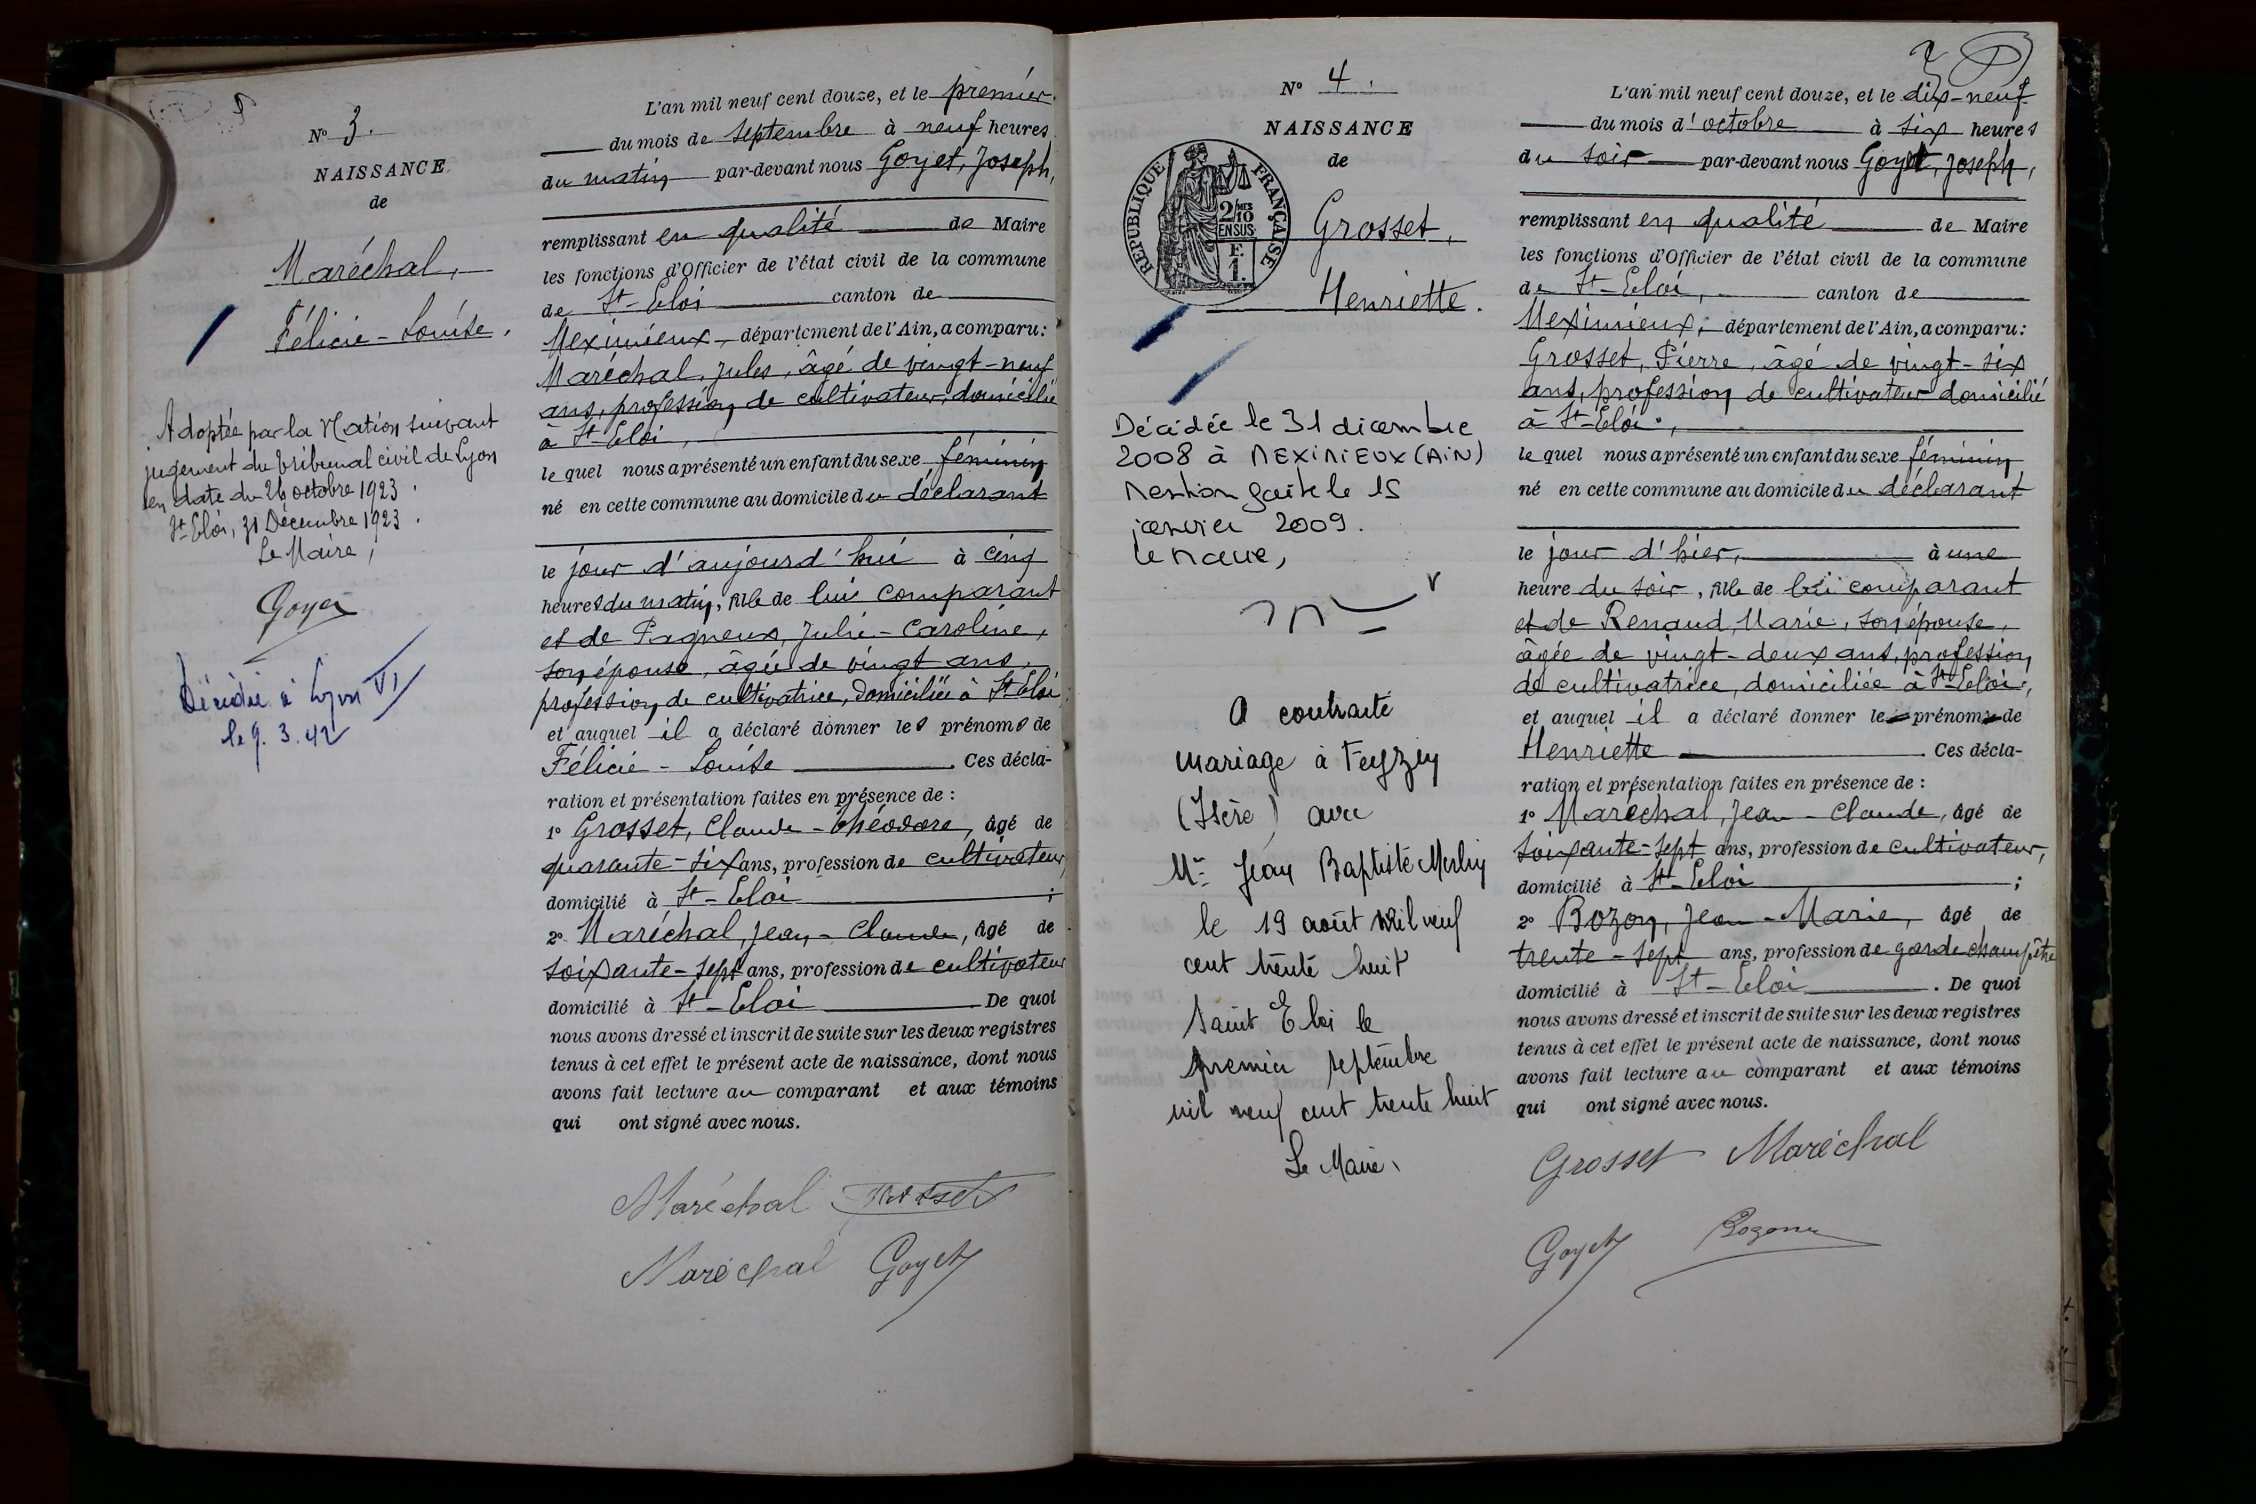 N° 3.
NAISSANCE
de
Maréchal,
Félicie - Louise.
Adoptée par la Nation suivant
jugement du tribunal civil de Lyon
en date du 26 octobre 1923.
St Eloi, 31 Décembre 1923.
Le Maire,
Goyet
Décédée à Lyon VI
le 9. 3. 42
L'an mil neuf cent douze, et le premier
du mois de septembre à neuf heures
du matin par-devant nous Goyet, Joseph,
remplissant en qualité de Maire
les fonctions d'Officier de l'état civil de la commune
de St-Eloi canton de
Meximieux, département de l'Ain, a comparu:
Maréchal, Jules, âgé de vingt-neuf
ans, profession de cultivateur, domicilié
à St Eloi,
le quel nous a présenté un enfant du sexe féminin
né en cette commune au domicile du déclarant
le jour d'aujourd'hui à cinq
heures du matin, fille de lui comparant
et de Pagneux, Julie-Caroline,
son épouse, âgée de vingt ans,
profession de cultivatrice, domiciliée à St Eloi,
et auquel il a déclaré donner les prénoms de
Félicie - Louise . Ces décla-
ration et présentation faites en présence de :
1° Grosset, Claude-Théodore, âgé de
quarante-six ans, profession de cultivateur,
domicilié à St-Eloi ;
2° Maréchal, Jean-Claude, âgé de
soixante-sept ans, profession de cultivateur
domicilié à St-Eloi De quoi
nous avons dressé et inscrit de suite sur les deux registres
tenus à cet effet le présent acte de naissance, dont nous
avons fait lecture au comparant et aux témoins
qui ont signé avec nous.
Maréchal Grosset
Maréchal Goyet
N° 4.
NAISSANCE
de
RÉPUBLIQUE FRANÇAISE
2/10 MES
EN SUS
F.
1.
Grosset,
Henriette.
Décédée le 31 décembre
2008 à MEXIMIEUX (AIN)
Mention faite le 15
janvier 2009.
Le Maire,
A contracté
mariage à Feyzin
(Isère) avec
Mr Jean Baptiste Merlin
le 19 août mil neuf
cent trente huit
Saint Eloi le
premier septembre
mil neuf cent trente huit
Le Maire,
L'an mil neuf cent douze, et le dix-neuf
du mois d'octobre à six heures
du soir par-devant nous Goyet, Joseph,
remplissant en qualité de Maire
les fonctions d'Officier de l'état civil de la commune
de St-Eloi, canton de
Meximieux, département de l'Ain, a comparu:
Grosset, Pierre, âgé de vingt-six
ans, profession de cultivateur domicilié
à St-Eloi,
le quel nous a présenté un enfant du sexe féminin
né en cette commune au domicile du déclarant
le jour d'hier, à une
heure du soir, fille de lui comparant
et de Renaud, Marie, son épouse,
âgée de vingt-deux ans, profession
de cultivatrice, domiciliée à St-Eloi,
et auquel il a déclaré donner le prénom de
Henriette . Ces décla-
ration et présentation faites en présence de :
1° Maréchal, Jean-Claude, âgé de
soixante-sept ans, profession de cultivateur,
domicilié à St-Eloi ;
2° Bozon, Jean-Marie, âgé de
trente-sept ans, profession de garde champêtre
domicilié à St-Eloi . De quoi
nous avons dressé et inscrit de suite sur les deux registres
tenus à cet effet le présent acte de naissance, dont nous
avons fait lecture au comparant et aux témoins
qui ont signé avec nous.
Grosset Maréchal
Goyet Bozon